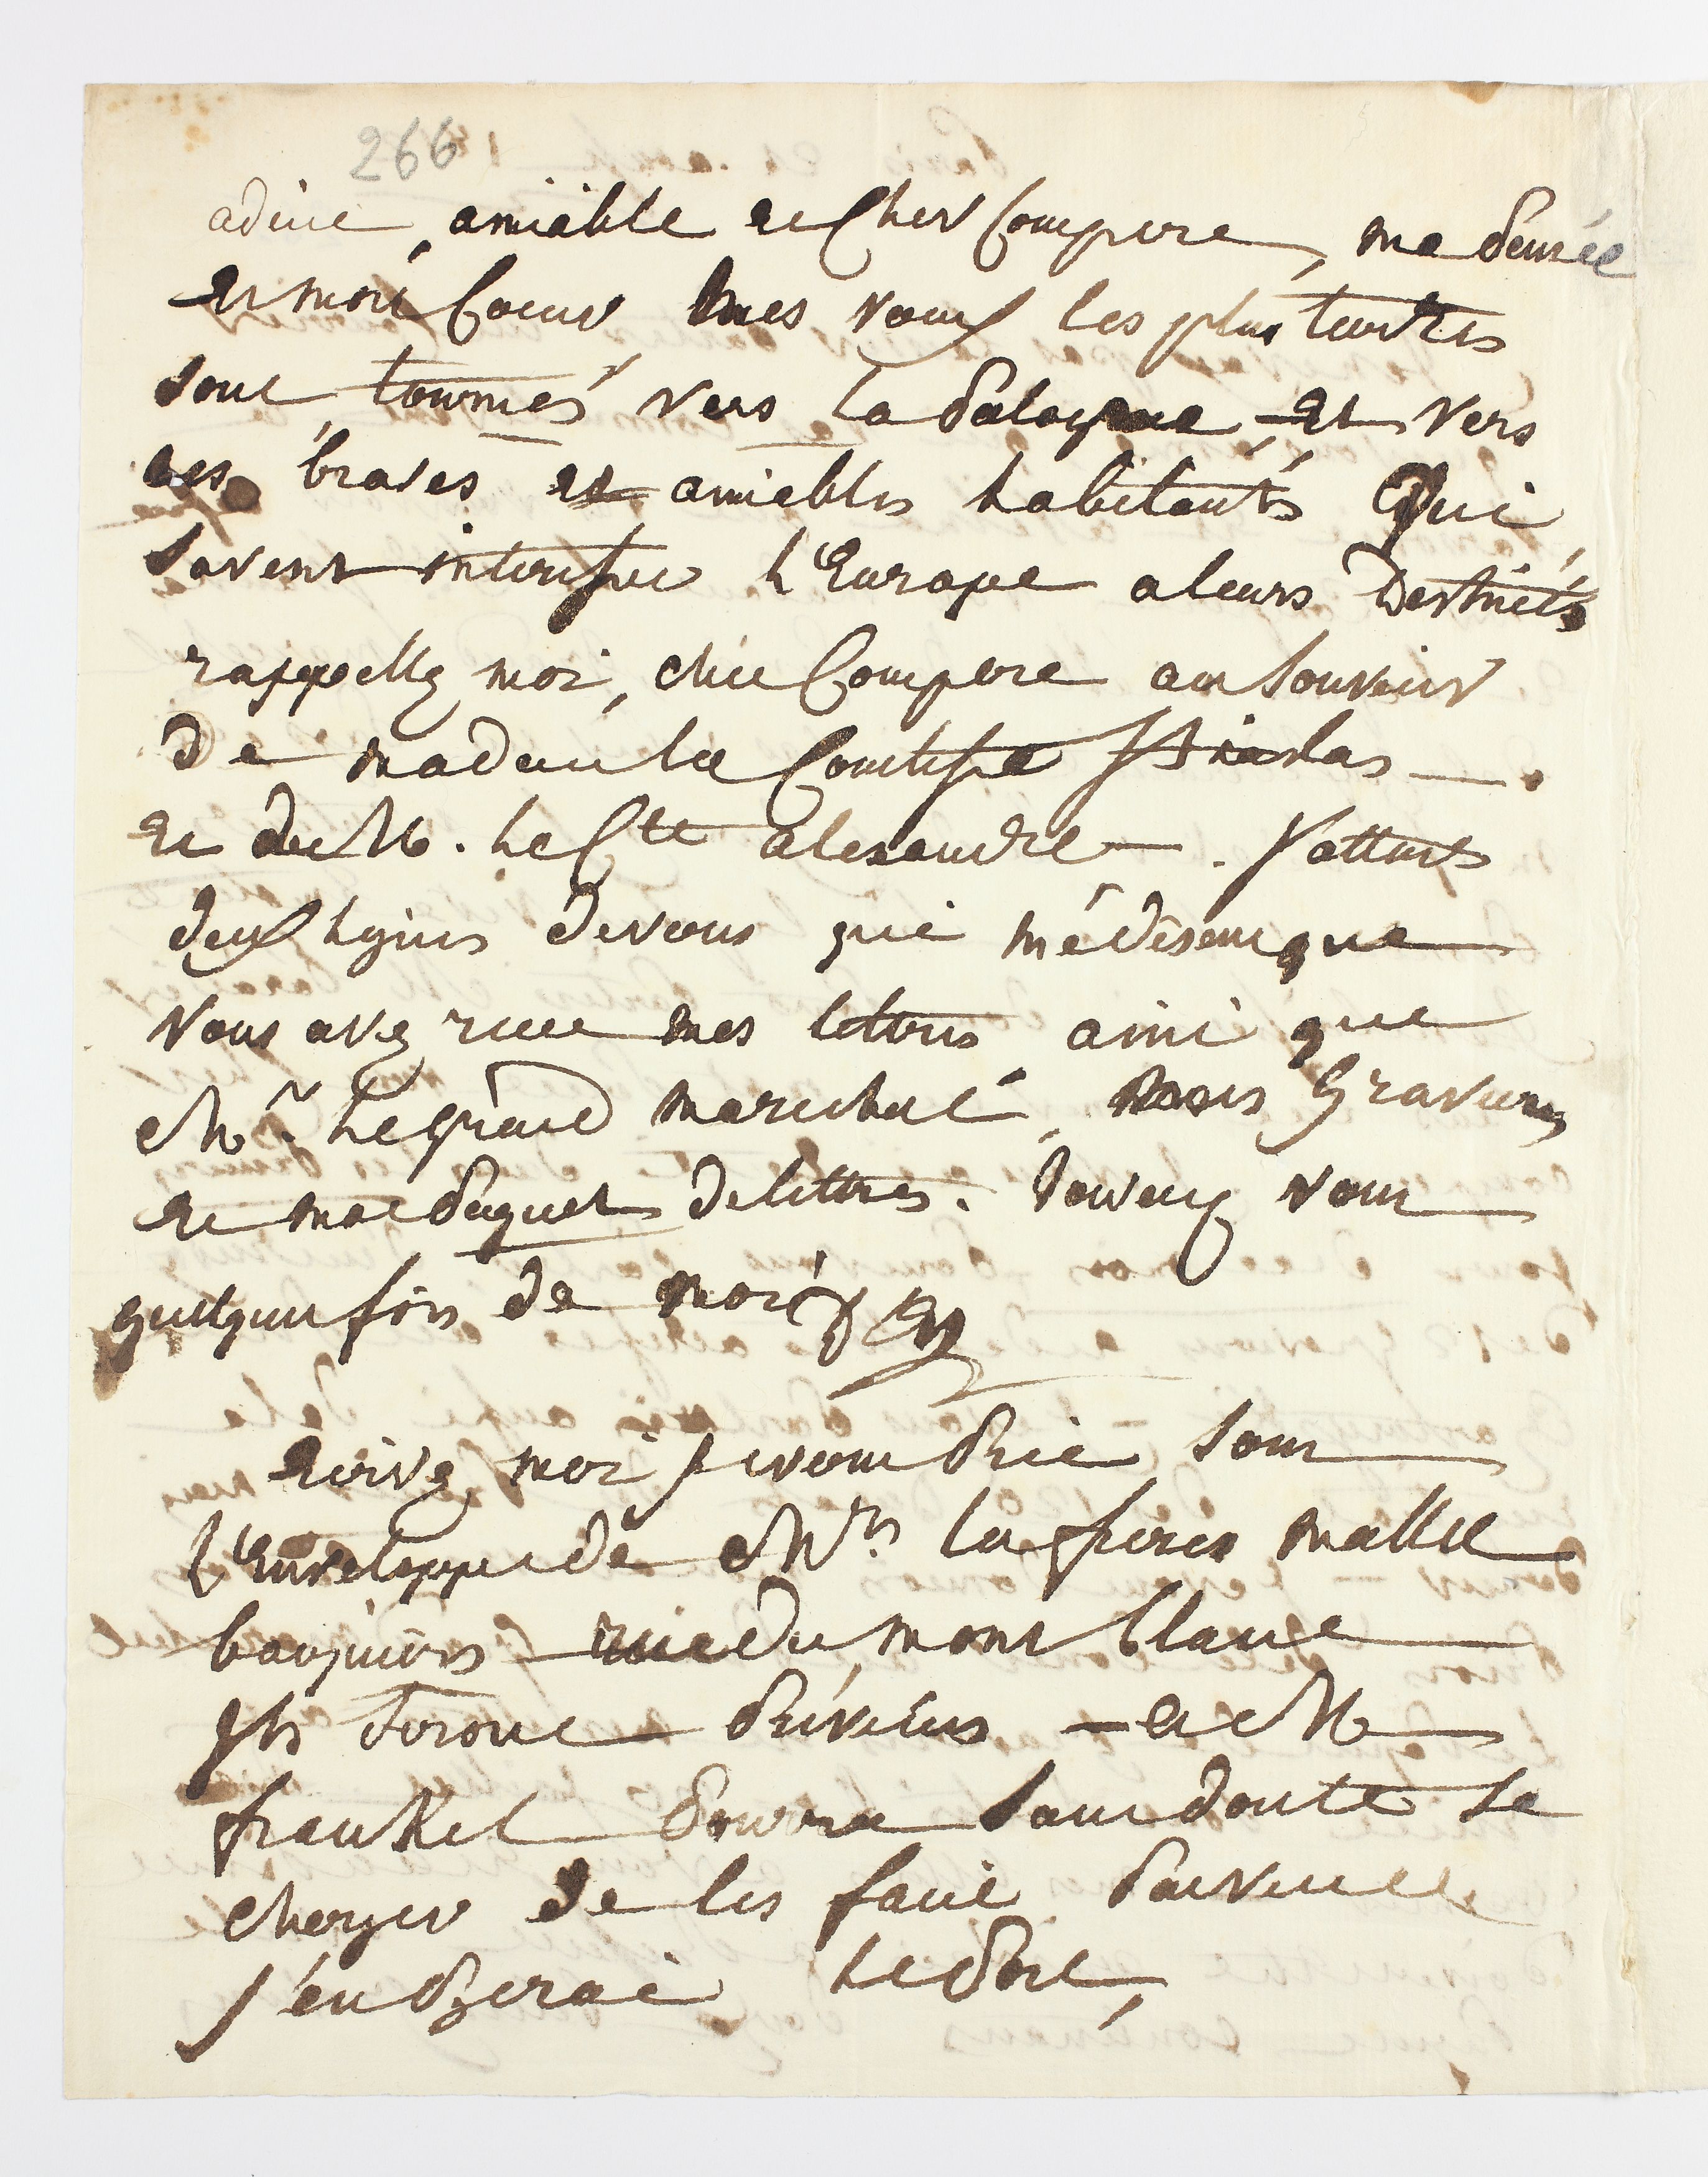 266
adieu, amiable et Cher Compere, ma pensée
et mon Coeur mes voeux les plus tendres
sont tournés vers la pologne, et vers
ces braves et amiables habitants Qui
savent interesser l'Europe a leurs Destinées
rappellez moi, cher Compere au souvenir
de madame la Comtesse
et de M. le Cte alexandre. J'attens
deux lignes de vous qui me disent que
vous avez recu mes lettres ainsi que
Mr. le grand marechal, mes gravures
et mon paquet de lettres. souvenez vous
quelque fois de moi
ecrivez moi je vous prie sous
l'enveloppe de Mrs. les freres mallet
banquiers rue du mont blanc
Ils seront prévenus - et M
frankel pourra sans doute se
charger de les faire parvenir
j'en payerai le port,